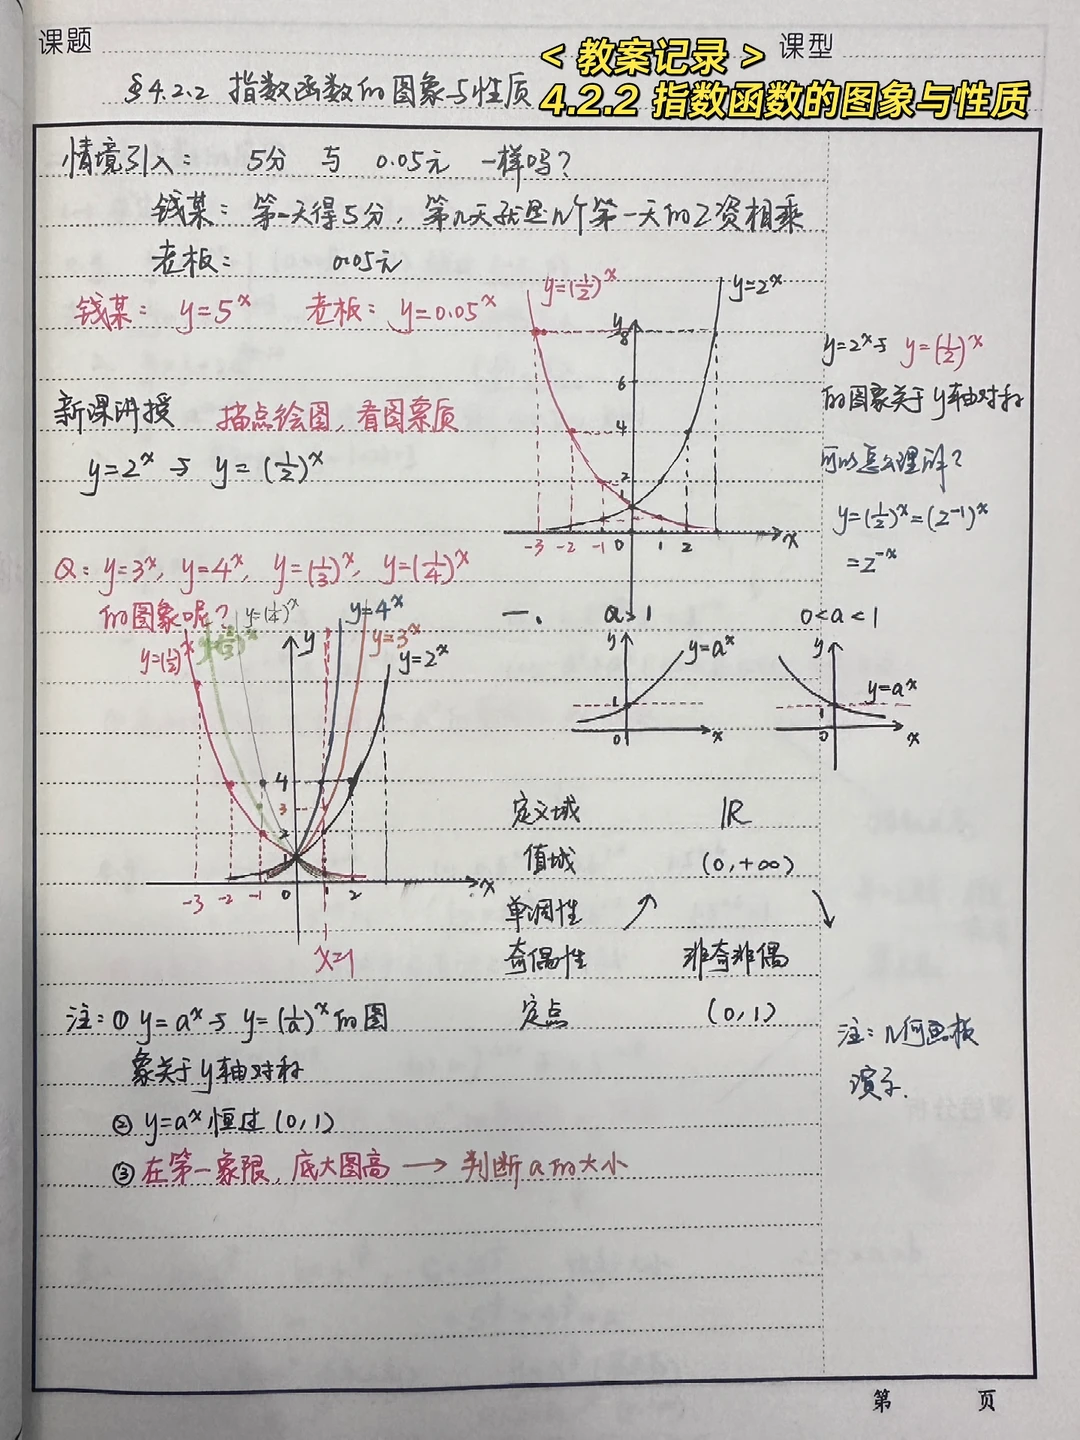 课题
课型
<教案记录>
4.2.2 指数函数的图象与性质
§4.2.2 指数函数的图象与性质
情境引入: 5分 与 0.05元 一样吗?
钱某: 第一天得5分, 第n天就是n个第一天的工资相乘
老板: 0.05元
钱某: y=5^x 老板: y=0.05^x
新课讲授 描点绘图, 看图索质
y=2^x 与 y=(1/2)^x
y=(1/2)^x
y=2^x
y
8
6
4
2
1
-3 -2 -1 0 1 2 x
y=2^x与 y=(1/2)^x
的图象关于y轴对称
可以怎么理解?
y=(1/2)^x=(2^-1)^x
=2^-x
Q: y=3^x, y=4^x, y=(1/3)^x, y=(1/4)^x
的图象呢?
y=(1/2)^x
y=(1/3)^x
y=(1/4)^x
y
y=4^x
y=3^x
y=2^x
4
3
2
1
-3 -2 -1 0 1 2 x
x=1
一、 a>1 0<a<1
y y=a^x 1 0 x
y y=a^x 1 0 x
定义域 R
值域 (0,+∞)
单调性 ↗ ↘
奇偶性 非奇非偶
定点 (0,1)
注: ① y=a^x与 y=(1/a)^x的图
象关于y轴对称
② y=a^x恒过(0,1)
③ 在第一象限, 底大图高 → 判断a的大小
注: 几何画板
演示.
第 页